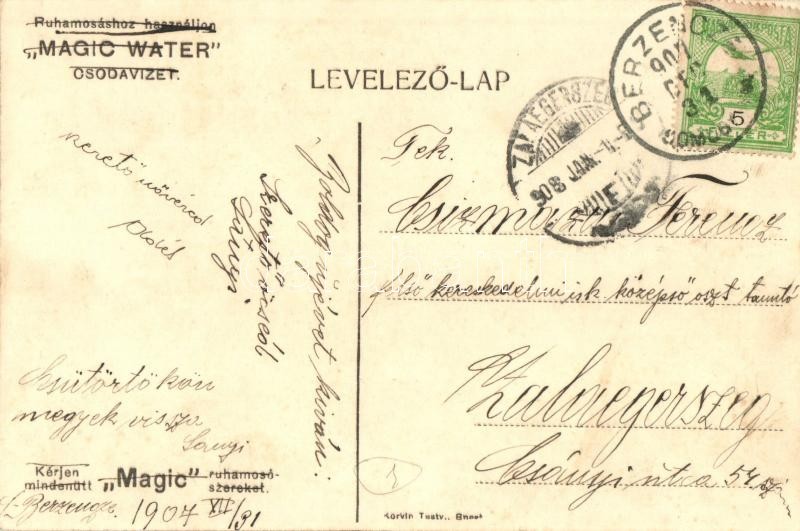 Ruhamosáshoz használjon
„MAGIC WATER"
CSODAVIZET.
LEVELEZŐ-LAP
szerető nővéred
Boldog újévet kiván:
Szerető öcséd
Sanyi
Csütörtökön
megyek vissza
Sanyi
Kérjen mindenütt „Magic" ruhamosó-szereket.
Berzencze 1907 XII/31
BERZENCZE
907 DEC 31
SOMOGY
ZALAEGERSZEG
908 JAN.
5
Tek.
Csizmazia Ferencz
felső kereskedelmi isk középső oszt tanuló
Zalaegerszeg
Csányi utca 54 szám
Korvin Testv., Bpest